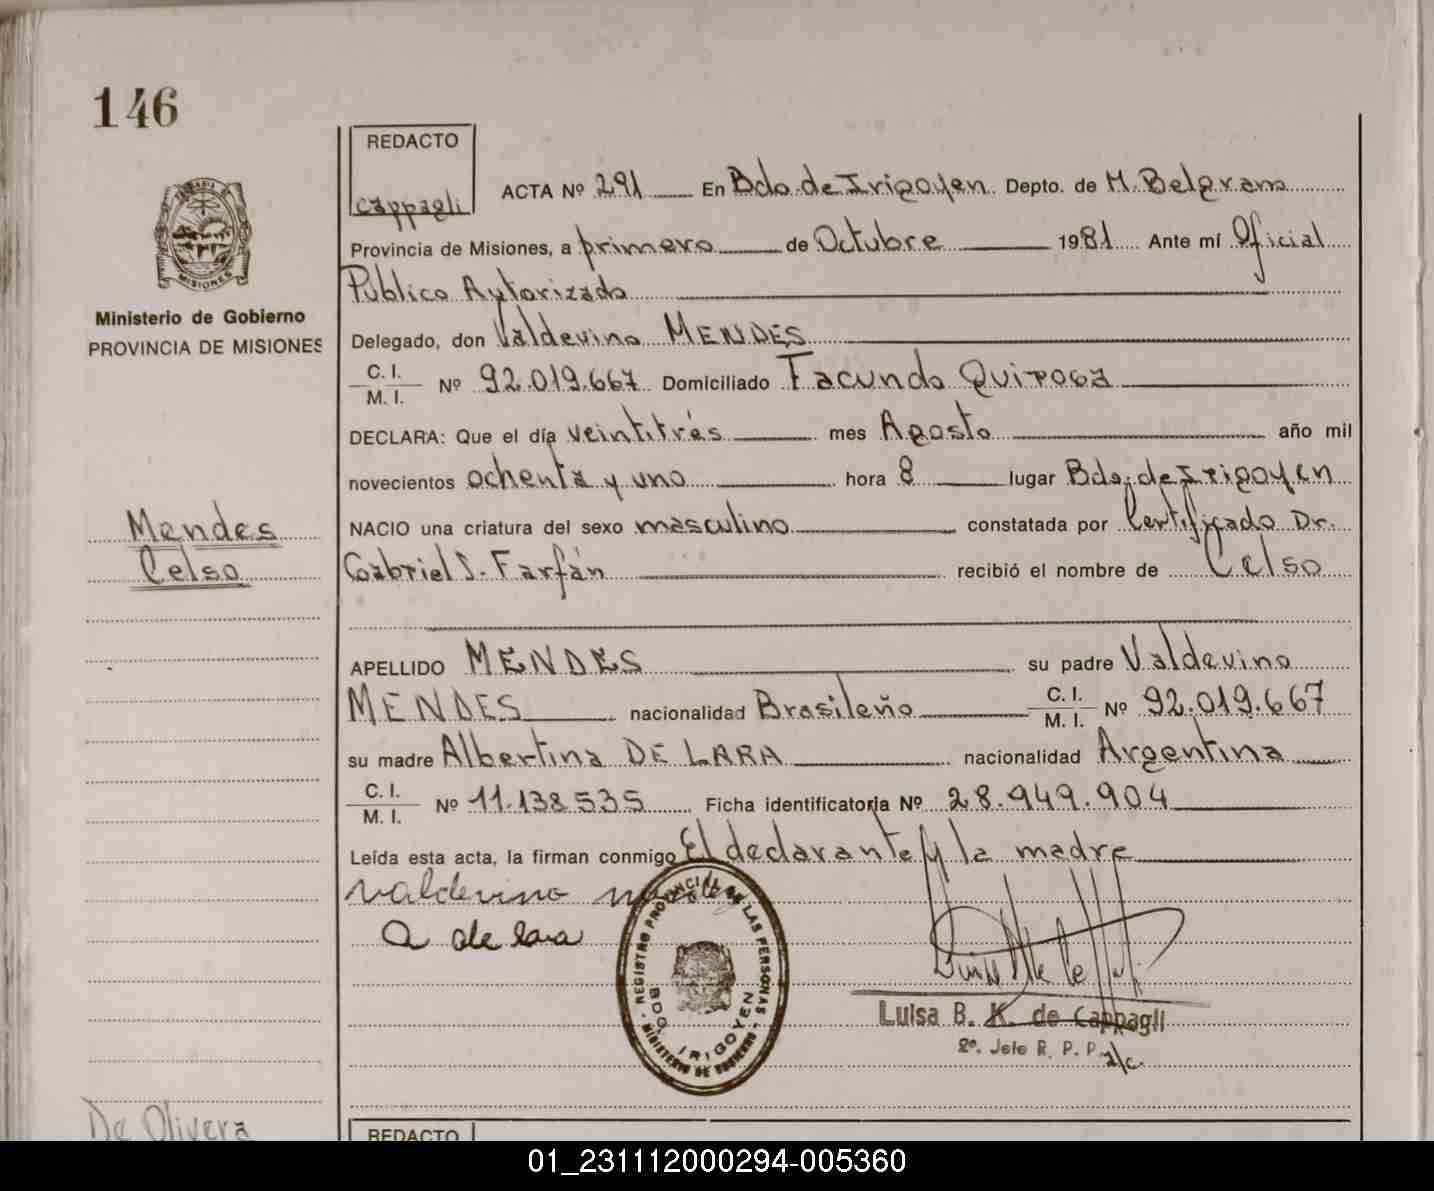 146
REDACTO
Cappagli
ACTA Nº 291 En Bdo. de Irigoyen. Depto. de M. Belgrano
Provincia de Misiones, a primero de Octubre 1981 Ante mí Oficial
Público Autorizado
MISIONES
Ministerio de Gobierno
PROVINCIA DE MISIONES
Delegado, don Valdevino MENDES
C. I.
M. I. Nº 92.019.667 Domiciliado Facundo Quiroga
DECLARA: Que el día veintitrés mes Agosto año mil
novecientos ochenta y uno hora 8 lugar Bdo. de Irigoyen
Mendes
Celso
NACIO una criatura del sexo masculino constatada por Certificado Dr.
Gabriel S. Farfán recibió el nombre de Celso
APELLIDO MENDES su padre Valdevino
MENDES nacionalidad Brasileño C. I. M. I. Nº 92.019.667
su madre Albertina DE LARA nacionalidad Argentina
C. I.
M. I. Nº 11.138.535 Ficha identificatoria Nº 28.949.904
Leída esta acta, la firman conmigo El declarante y la madre
valdevino
a de lara
REGISTRO PROVINCIAL DE LAS PERSONAS
BDO. IRIGOYEN
MINISTERIO DE GOBIERNO
Luisa B. K. de Cappagli
2º. Jefe R. P. P. a/c.
De Olivera
REDACTO
01_231112000294-005360